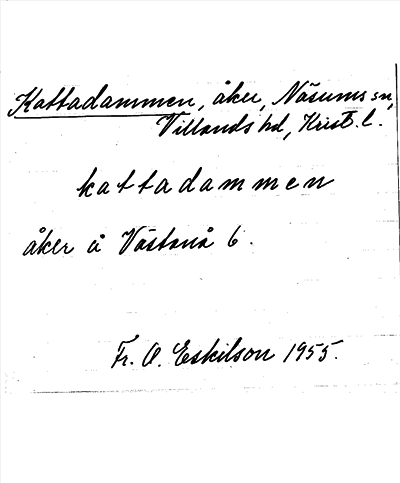 Kattadammen, åker, Näsums sn,
Villands hd, Krist. l.
kattadammen
åker å Västanå 6.
Fr. O. Eskilson 1955.